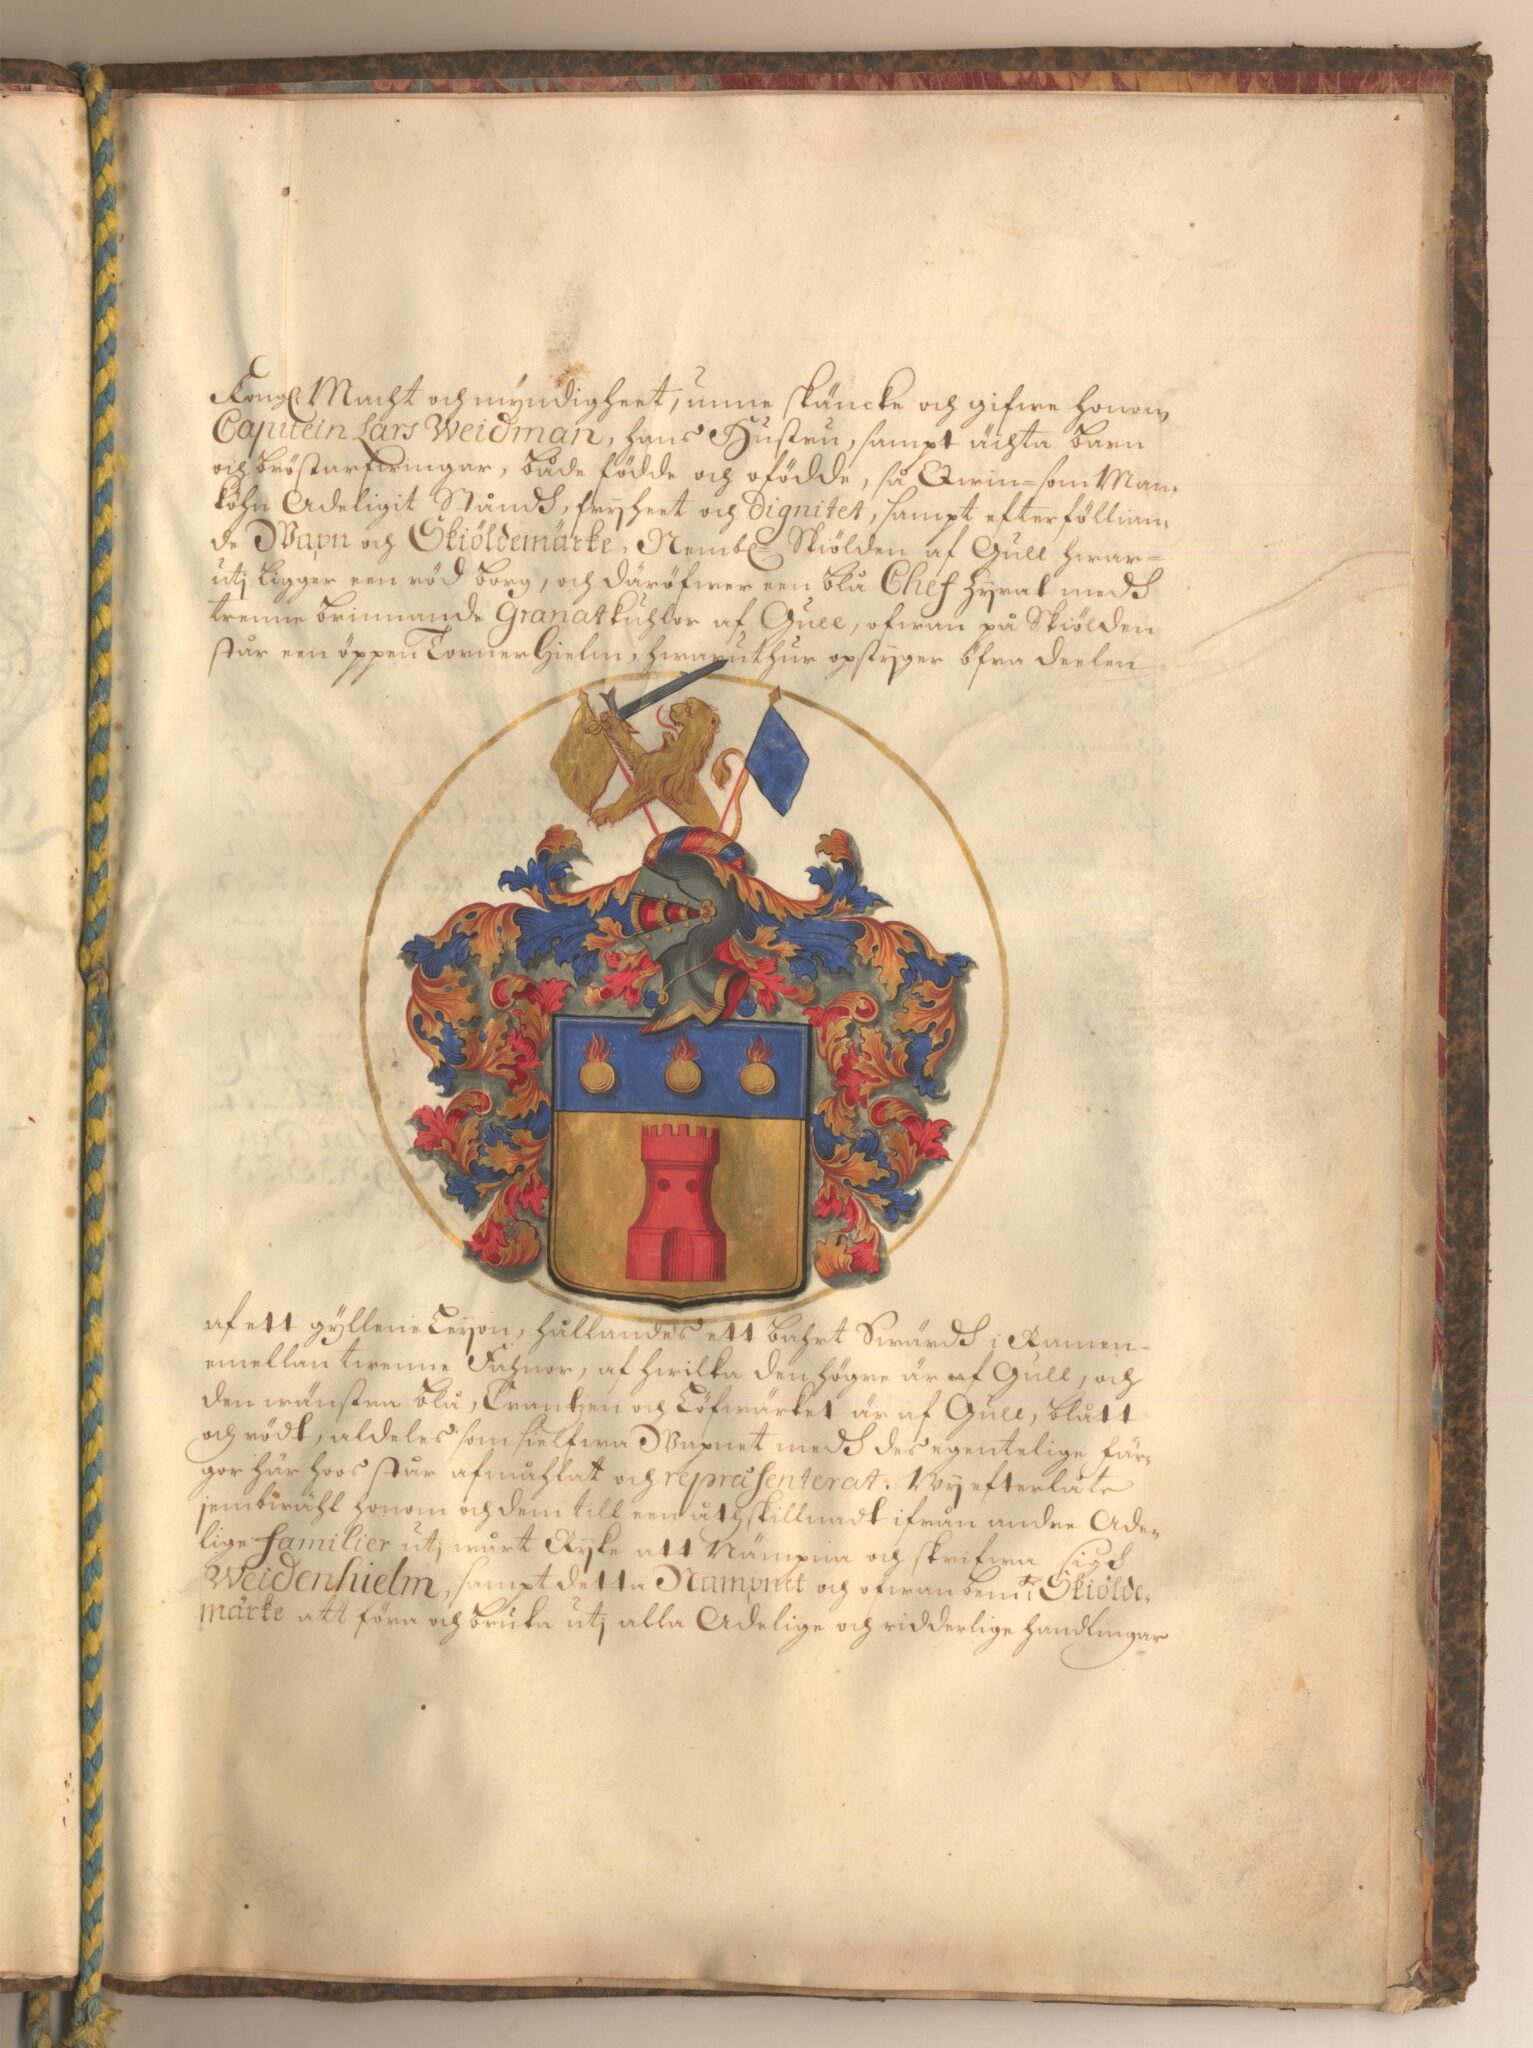 Kongl. Macht och myndigheet, unne skäncke och gifwe honom
Capitein Lars Weidman, hans Hustru, sampt ächta barn
och bröstarfwingar, både födde och ofödde, så Qwin= som Man-
köhn Adeligit Stånds, fryheet och Dignitet, sampt efterföllian-
de Wapn och Skiöldemärke, Nembl= Skiölden af Gull hwar=
utj ligger een röd borg, och däröfwer een blå Chef Zyrat medh
trenne brinnande Granatkuhlor af Gull, ofwan på Skiölden
står een öppen Torner Hielm, hwaruthur opstyger öfra deelen
af ett gyllene Leyon, hållandes ett bahrt Swärdh i Ramen
emellan twenne Fahnor, af hwilka den högre är af Gull, och
den wänstra blå, Crantzen och Löfwärket är af Gull, blått
och rödt, aldeles som sielfwa Wapnet medh des egentelige fär-
gor här hoos står afmåhlat och repræsenterat. Wy efterlåte
jembwähl honom och dem till een åthskillnadt ifrån andre Ade-
lige familier utj wårt Ryke att Nämpna och skrifwa sigh
Weidenhielm, sampt detta Nampnet och ofwanbem:te Skiölde-
märke att föra och bruka utj alla Adelige och ridderlige handlingar